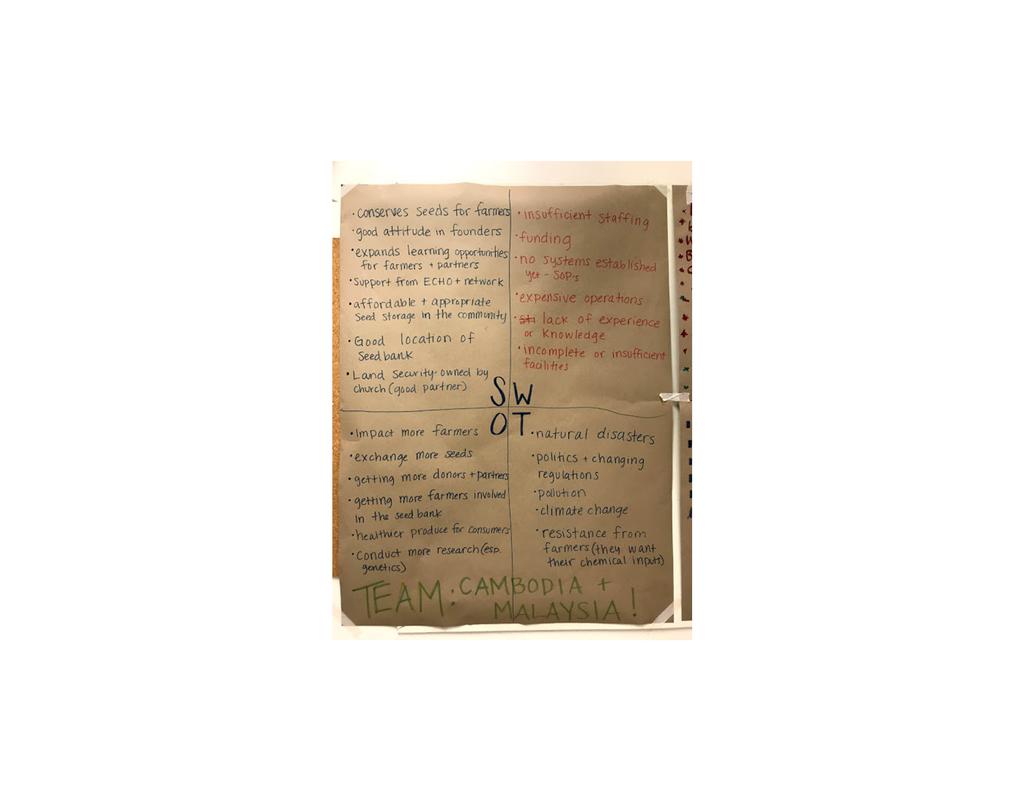 • conserves seeds for farmers
• good attitude in founders
• expands learning opportunities
for farmers + partners
• Support from ECHO + network
• affordable + appropriate
Seed storage in the community
• Good location of
Seed bank
• Land security- owned by
church (good partner)
• insufficient staffing
• funding
• no systems established
yet - SOP's
• expensive operations
• Sti lack of experience
or knowledge
• incomplete or insufficient
facilities
S W
O T
• Impact more farmers
• exchange more seeds
• getting more donors + partners
• getting more farmers involved
in the seed bank
• healthier produce for consumers
• Conduct more research (esp.
genetics)
• natural disasters
• politics + changing
regulations
• pollution
• climate change
• resistance from
farmers (they want
their chemical inputs)
TEAM: CAMBODIA +
MALAYSIA!